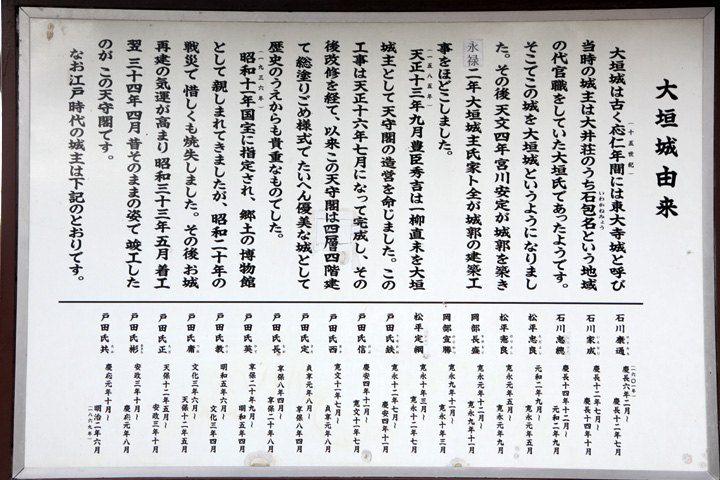 大垣城由来
大垣城は古く応仁年間には東大寺城と呼び
(十五世紀)
当時の城主は大井荘のうち石包名という地域
いわかねみょう
の代官職をしていた大垣氏であったようです。
そこでこの城を大垣城というようになりまし
た。その後天文四年宮川安定が城郭を築き
永禄二年大垣城主氏家卜全が城郭の建築工
事をほどこしました。
(一五八五年)
天正十三年九月豊臣秀吉は一柳直末を大垣
城主として天守閣の造営を命じました。この
工事は天正十六年七月になって完成し、その
後改修を経て、以来この天守閣は四層四階建
て総塗りごめ様式でたいへん優美な城として
歴史のうえからも貴重なものでした。
(一九三六年)
昭和十一年国宝に指定され、郷土の博物館
として親しまれてきましたが、昭和二十年の
戦災で惜しくも焼失しました。その後お城
再建の気運が高まり昭和三十三年五月着工
翌三十四年四月昔そのままの姿で竣工した
のがこの天守閣です。
なお江戸時代の城主は下記のとおりです。
(一六〇一年)
石川康通 慶長六年二月~慶長十二年七月
石川家成 慶長十二年七月~慶長十四年十月
石川忠總 慶長十四年十二月~元和二年九月
松平忠良 元和二年九月~寛永元年五月
松平憲良 寛永元年五月~寛永元年九月
岡部長盛 寛永元年十二月~寛永九年十一月
岡部宣勝 寛永九年十一月~寛永十年三月
松平定綱 寛永十年三月~寛永十二年七月
戸田氏鉄 寛永十二年七月~慶安四年十一月
戸田氏信 慶安四年十一月~寛文十一年七月
戸田氏西 寛文十一年七月~貞享元年八月
戸田氏定 貞享元年八月~享保八年四月
戸田氏長 享保八年四月~享保二十年八月
戸田氏英 享保二十年九月~明和五年四月
戸田氏教 明和五年六月~文化三年四月
戸田氏庸 文化三年六月~天保十二年五月
戸田氏正 天保十二年五月~安政三年十月
戸田氏彬 安政三年十月~慶応元年八月
戸田氏共 慶応元年十月~明治二年六月
(一八六九年)